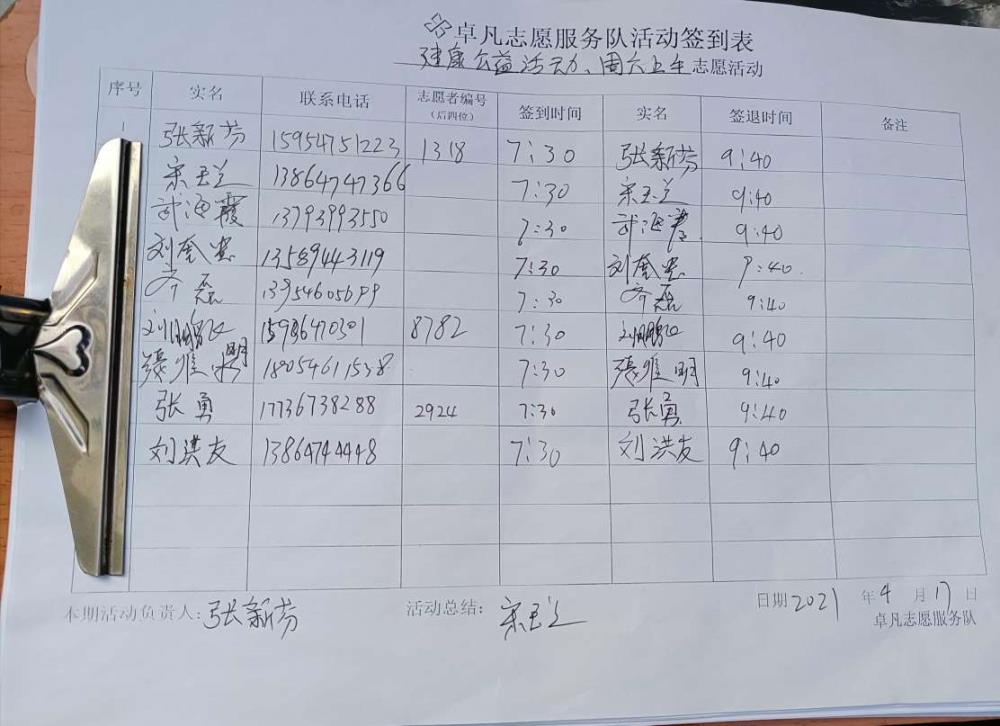 卓凡志愿服务队活动签到表
健康公益活动、周六上午志愿活动
序号 实名 联系电话 志愿者编号(后四位) 签到时间 实名 签退时间 备注
1 张新芬 15954751223 1318 7:30 张新芬 9:40
宋玉兰 13864747366 7:30 宋玉兰 9:40
武海霞 13793993550 7:30 武海霞 9:40
刘奎忠 13589443119 7:30 刘奎忠 9:40
齐磊 13954605699 7:30 齐磊 9:40
刘鹏 15986470301 8782 7:30 刘鹏 9:40
张维明 18054611538 7:30 张维明 9:40
张勇 17736738288 2924 7:30 张勇 9:40
刘洪友 13864744448 7:30 刘洪友 9:40
本期活动负责人:张新芬 活动总结:宋玉兰 日期2021年4月17日
卓凡志愿服务队